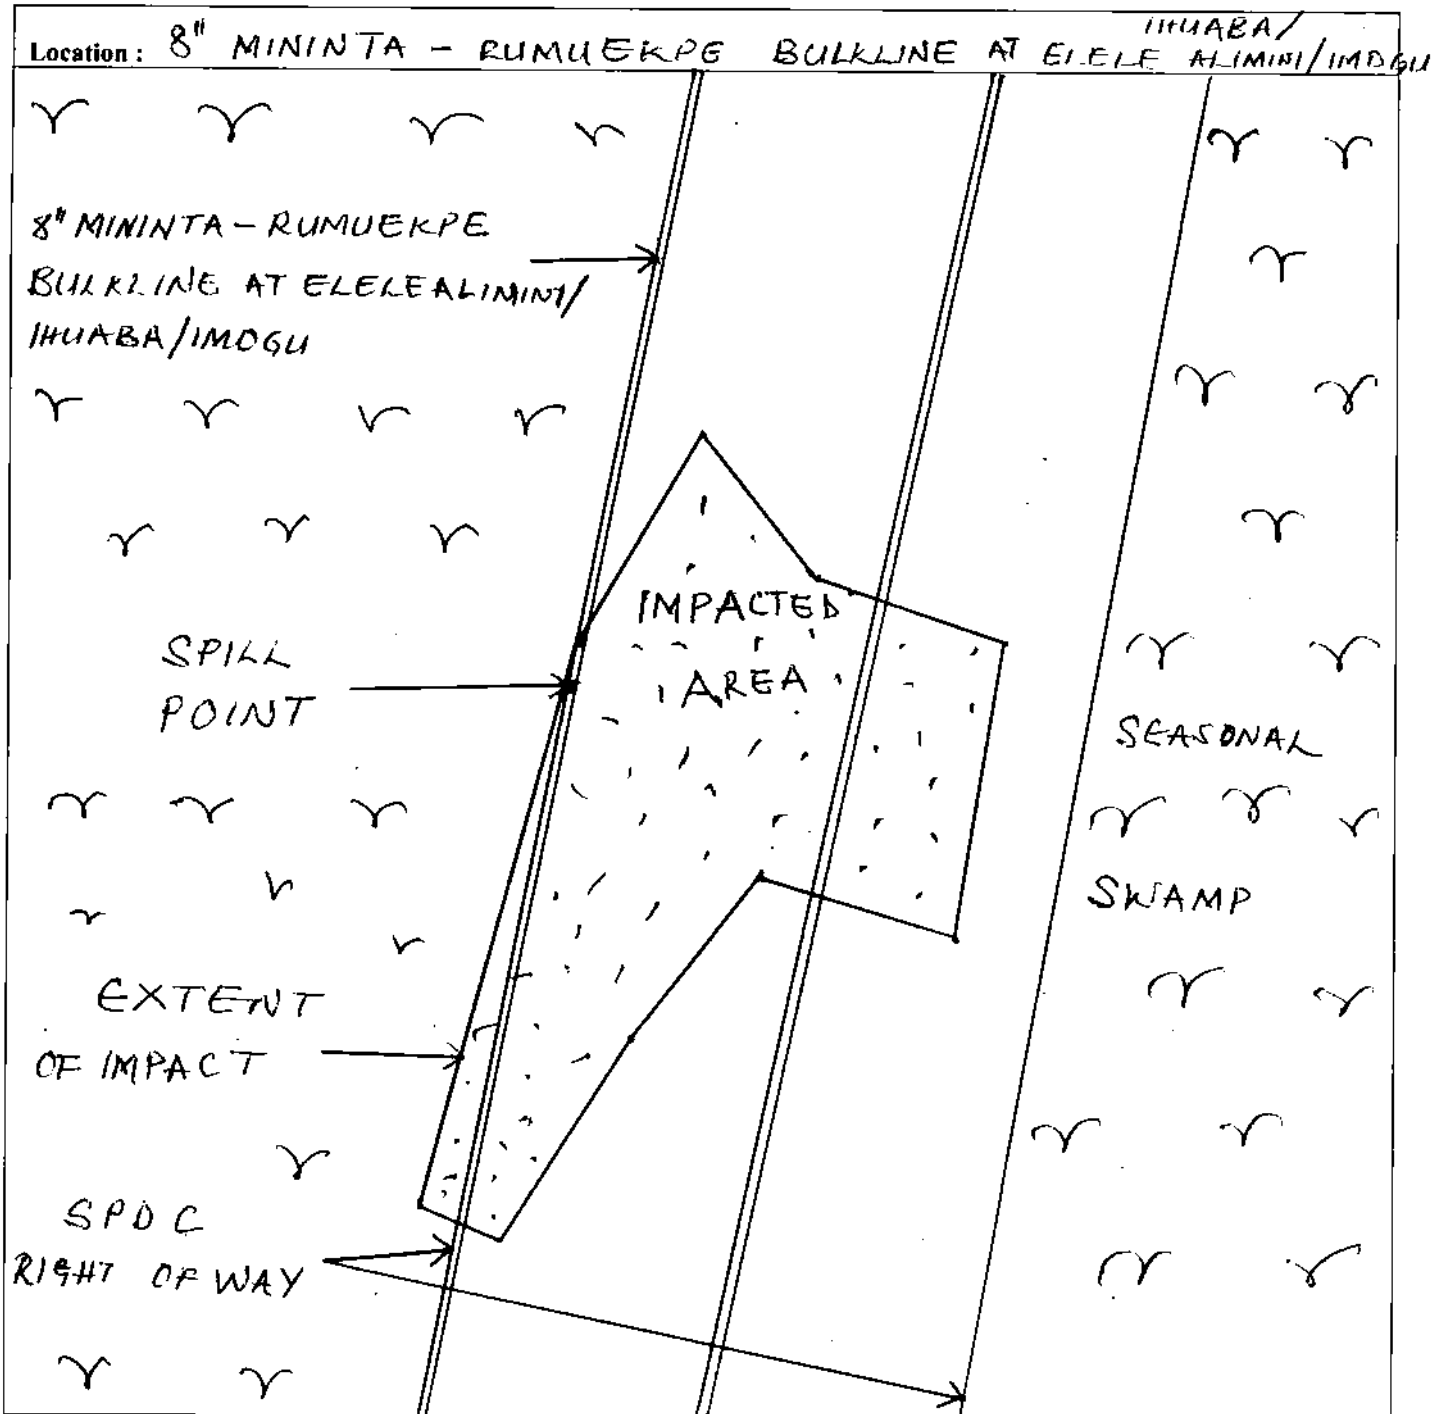 IHUABA/
Location : 8" MININTA - RUMUEKPE BULKLINE AT ELELE ALIMINI/IMOGU
8" MININTA - RUMUEKPE
BULKLINE AT ELELEALIMINI/
IHUABA/IMOGU
IMPACTED
AREA
SPILL
POINT
SEASONAL
SWAMP
EXTENT
OF IMPACT
SPDC
RIGHT OF WAY